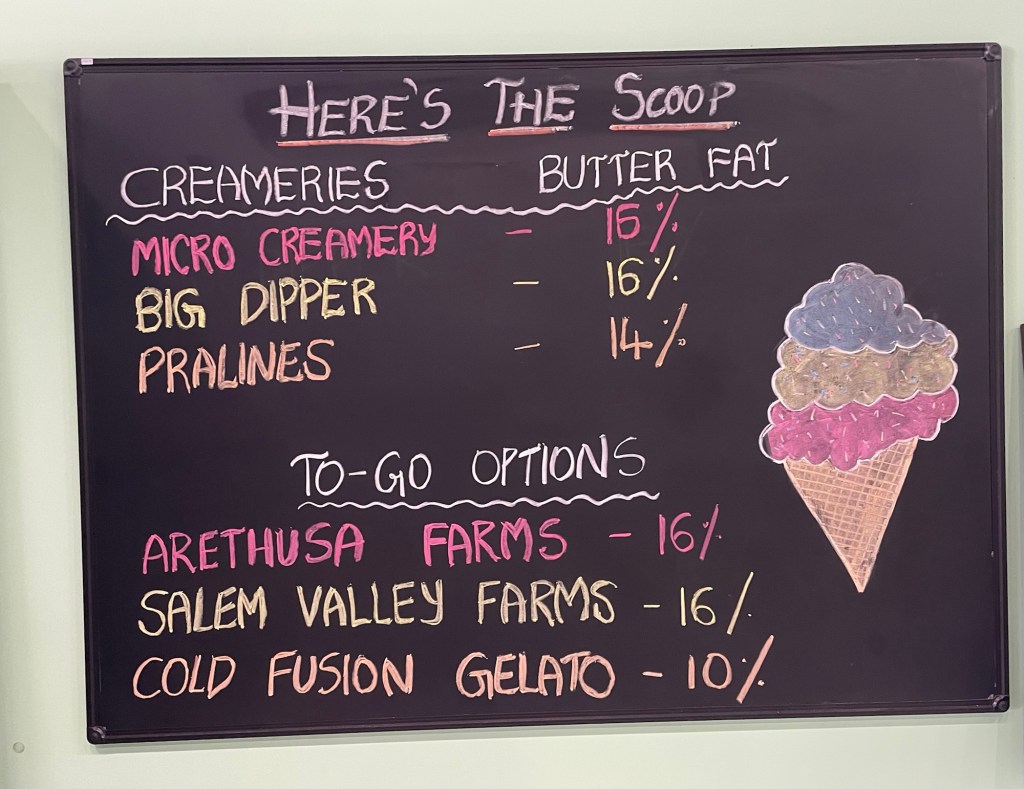 HERE'S THE SCOOP
CREAMERIES BUTTER FAT
MICRO CREAMERY - 16%
BIG DIPPER - 16%
PRALINES - 14%
TO-GO OPTIONS
ARETHUSA FARMS - 16%
SALEM VALLEY FARMS - 16%
COLD FUSION GELATO - 10%